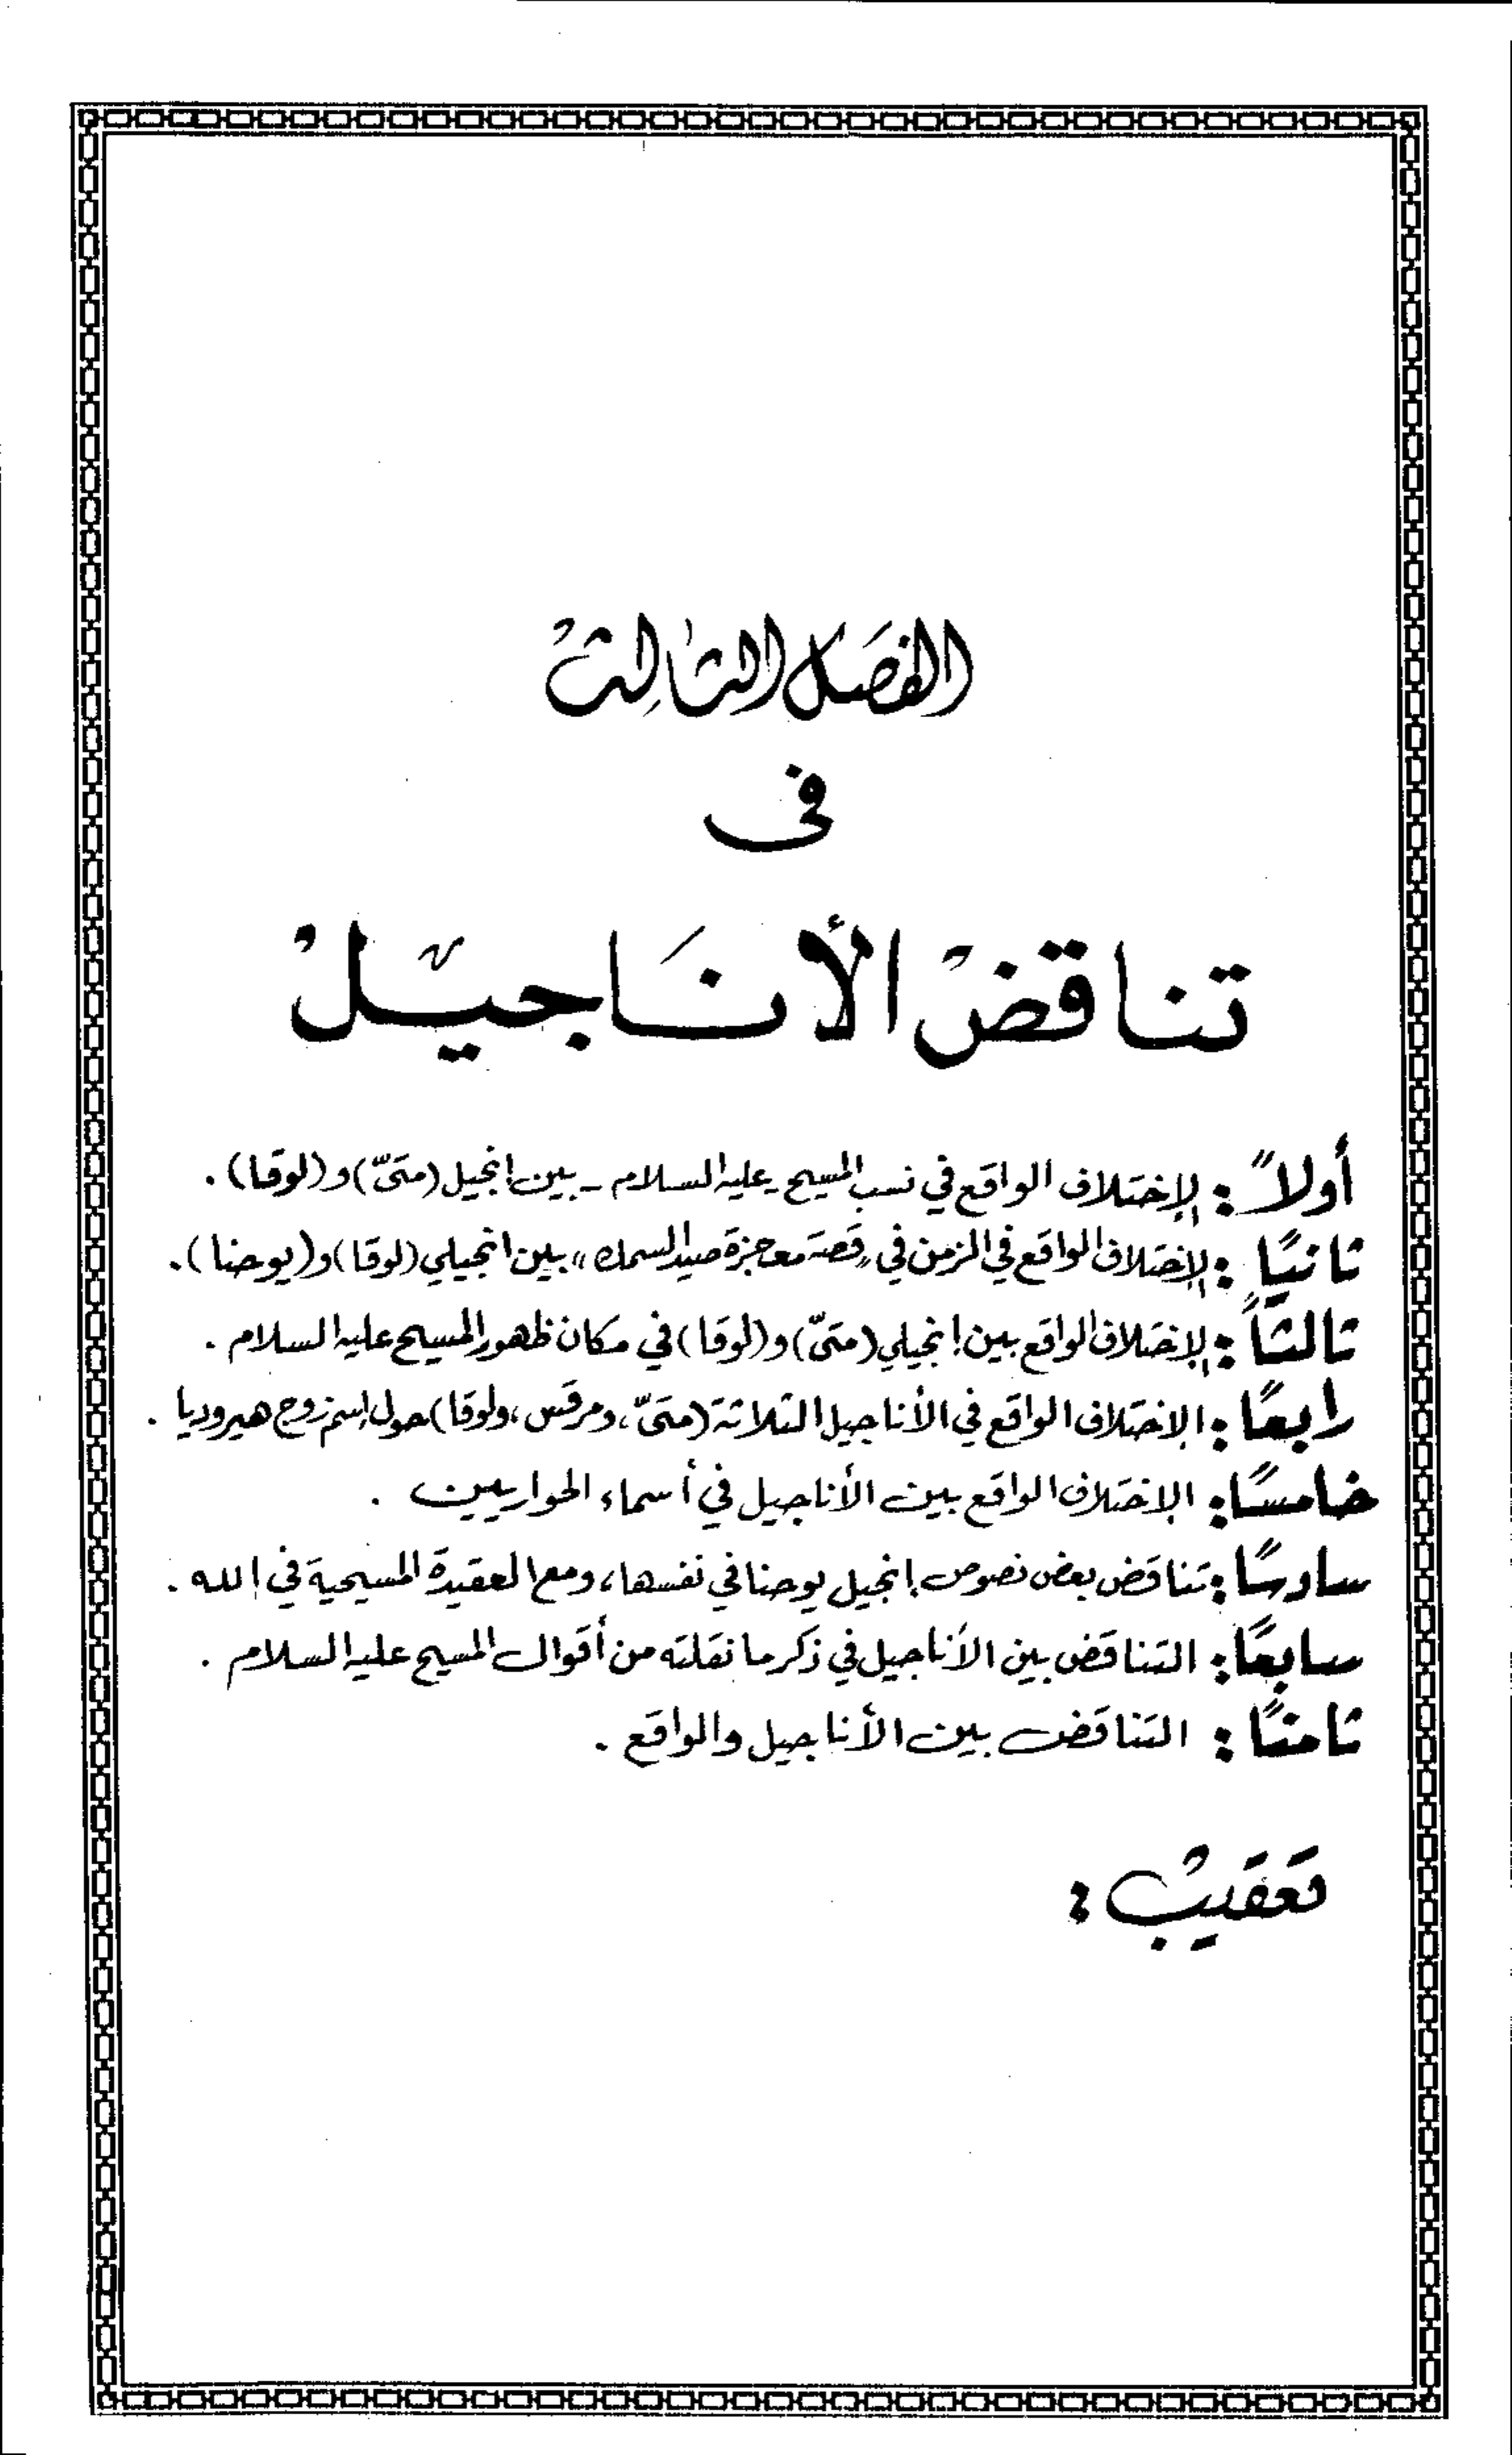 الفصل الثالث
فى
تناقض الأناجيل
أولاً : الإختلاف الواقع في نسب المسيح - عليه السلام - بين انجيل (متىّ) و (لوقا) .
ثانيًا : الإختلاف الواقع في الزمن في «قصة معجزة صيد السمك» بين انجيلي (لوقا) و (يوحنا) .
ثالثاً : الإختلاف الواقع بين إنجيلي (متىّ) و (لوقا) في مكان ظهور المسيح عليه السلام .
رابعًا : الإختلاف الواقع في الأناجيل الثلاثة (متىّ ، ومرقس ، ولوقا) حول إسم زوج هيروديا .
خامسًا : الإختلاف الواقع بين الأناجيل في أسماء الحواريين .
سادسًا : تناقض بعض نصوص إنجيل يوحنا في نفسها ، ومع العقيدة المسيحية في الله .
سابعًا : التناقض بين الأناجيل في ذكر ما نقلته من أقوال المسيح عليه السلام .
ثامنًا : التناقض بين الأناجيل والواقع .
تعقيب :